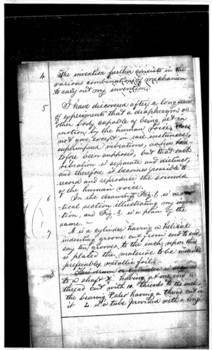 4 The invention further consists in the
various combinations of mechanism
to carry out my invention.
5 I have discovered after a long series
of experiments that a diaphragm or
other body capable of being set in
motion by the human voice does
not give, except in rare instances,
superimposed vibrations, as has here-
tofore been supposed, but that each
vibration is separate and distinct,
and therefore it becomes possible to
record and reproduce the sounds
of the human voice.
6 In the drawing Fig 1 is a verti-
cal section illustrating my inven-
tion, and Fig 2 is a plan of the
same.
7 A is a cylinder having a helical
indenting groove cut from end to end
say ten grooves to the inch, upon this
is placed the material to be indented
preferably metallic foil.
to a shaft X having at one end a
thread cut with 10 threads to the inch
the bearing P also having a thread cut in
it L is a tube provided with a